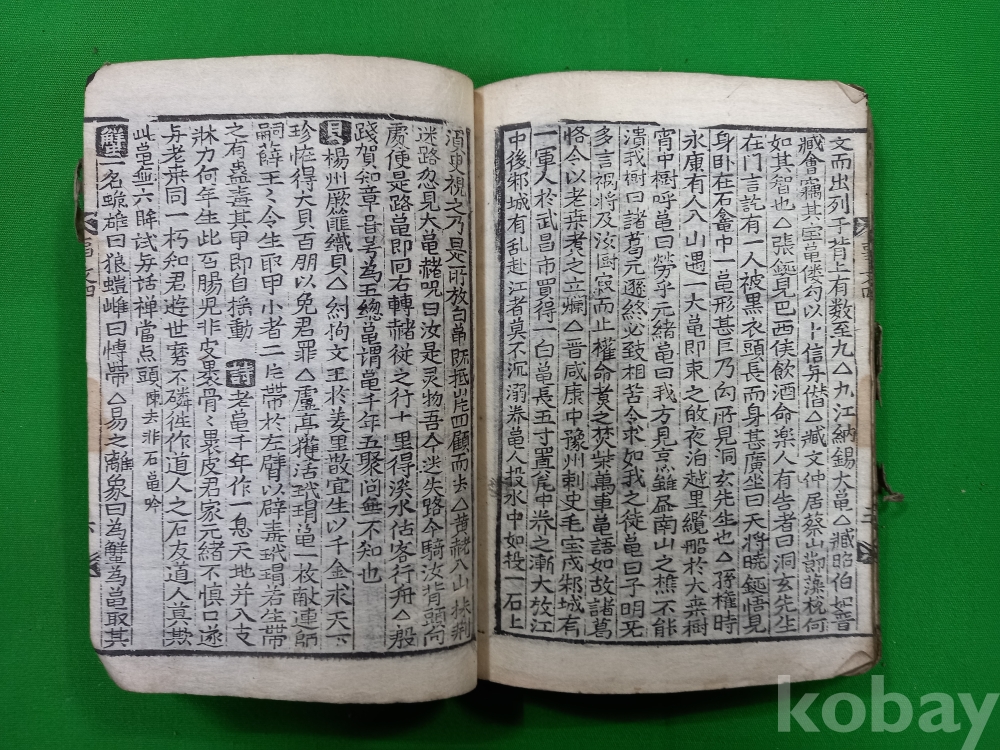 文而出列于背上有数至九△九江納錫大亀△臧昭伯如晋
臧會竊其宝亀僂勾以卜信与僭△臧文仲居蔡山節藻梲何
如其智也△張見巴西侯飲酒命楽人有告者曰洞玄先生
在門言訖有一人被黒衣頭長而身甚廣坐曰天將曉悟見
身卧在石龕中一亀形甚巨乃勾所見洞玄先生也△孫権時
永康有人入山遇一大亀即束之㪅夜泊越里纜船於大桒樹
宵中樹呼亀曰勞乎元緒亀曰我方見烹雖尽南山之樵不能
潰我樹曰諸葛元遜終必致相苦令求如我之徒亀曰子明无
多言禍將及汝樹寂而止權命煮之焚柴萬車亀語如故諸葛
恪令以老桒煮之立爛△晋咸康中豫州刺史毛宝戍邾城有
一軍人於武昌市買得一白亀長五寸置瓮中养之漸大放江
中後邾城有乱赴江者莫不沉溺养亀人投水中如投一石上
須臾視之乃是所放白亀既抵岸四顧而去△黄赭入山採
迷路忽見大亀赭呪曰汝是灵物吾今迷失路今騎汝背頭向
處便是路亀即回右轉赭從之行十里得溪水估客行舟△殷
踐賀知章号為五總亀謂亀千年五聚问無不知也
貝楊州厥篚織貝△紂拘文王於羑里散宜生以千金求天下
珍恠得大貝百朋以免君罪△盧亭獲活玳瑁亀一枚献連師
嗣薛王王令生取甲小者二片帯於左臂以辟毒玳瑁若生帯
之有蟲毒其甲即自揺動 詩老亀千年作一息天地并入支
牀力何年生此百腸兒非皮裹骨骨裹皮君家元緒不慎口遂
与老桒同一朽知君遊世磨不磷徃作道人之石友道人莫欺
此亀無六眸试与话禅当点頭陳去非石亀吟
蟹一名跪雄曰狼螘雌曰博帯△易之離象曰為蟹為亀取其